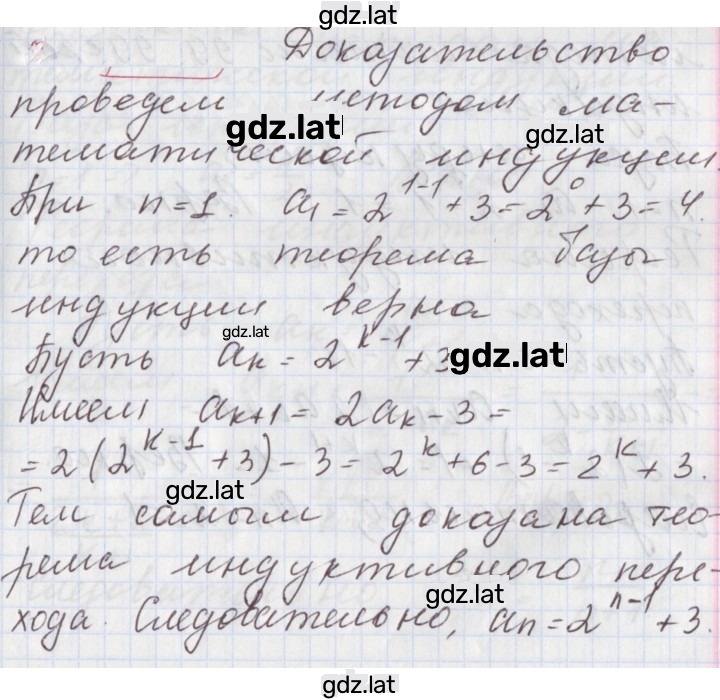 gdz.lat
Доказательство
проведем методом ма-
gdz.lat
gdz.lat
тематической индукции.
При n=1. a₁ = 2¹⁻¹ + 3 = 2⁰ + 3 = 4.
то есть теорема базы
индукции верна
gdz.lat
Пусть aₖ = 2ᵏ⁻¹ + 3
gdz.lat
Имеем aₖ₊₁ = 2aₖ - 3 =
= 2(2ᵏ⁻¹ + 3) - 3 = 2ᵏ + 6 - 3 = 2ᵏ + 3.
gdz.lat
Тем самым доказана тео-
рема индуктивного пере-
gdz.lat
хода. Следовательно, aₙ = 2ⁿ⁻¹ + 3.
gdz.lat